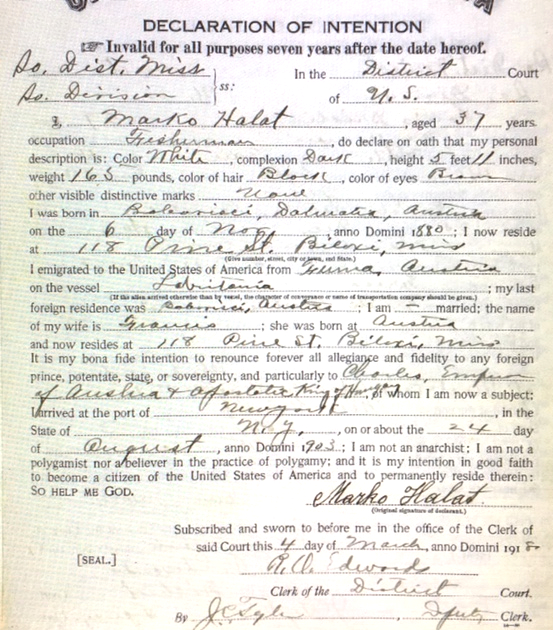 DECLARATION OF INTENTION
☞ Invalid for all purposes seven years after the date hereof.
So. Dist. Miss In the District Court
So. Division ss: of U. S.
I, Marko Halat, aged 37 years,
occupation Fisherman, do declare on oath that my personal
description is: Color White, complexion Dark, height 5 feet 11 inches,
weight 165 pounds, color of hair Black, color of eyes Brown
other visible distinctive marks None
I was born in Dalmatia, Austria
on the 6 day of Nov, anno Domini 1880; I now reside
at 118 Pine St. Biloxi, Miss
(Give number, street, city or town, and State.)
I emigrated to the United States of America from Fiume, Austria
on the vessel; my last
(If the alien arrived otherwise than by vessel, the character of conveyance or name of transportation company should be given.)
foreign residence was Austria; I am — married; the name
of my wife is; she was born at Austria
and now resides at 118 Pine St, Biloxi, Miss
It is my bona fide intention to renounce forever all allegiance and fidelity to any foreign
prince, potentate, state, or sovereignty, and particularly to Charles, Emperor
of Austria & Apostolic King of Hungary, of whom I am now a subject;
I arrived at the port of New York, in the
State of N. Y., on or about the 24 day
of August, anno Domini 1903; I am not an anarchist; I am not a
polygamist nor a believer in the practice of polygamy; and it is my intention in good faith
to become a citizen of the United States of America and to permanently reside therein:
SO HELP ME GOD.
Marko Halat
(Original signature of declarant.)
Subscribed and sworn to before me in the office of the Clerk of
said Court this 4 day of March, anno Domini 1918
[SEAL.] R. O. Edwards
Clerk of the District Court.
By J. C. Tyler Deputy Clerk.